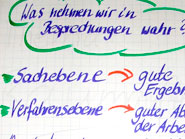 Was nehmen wir in
Besprechungen wahr
Sachebene → gute
Ergebn
Verfahrensebene → guter Ab
der Arbe